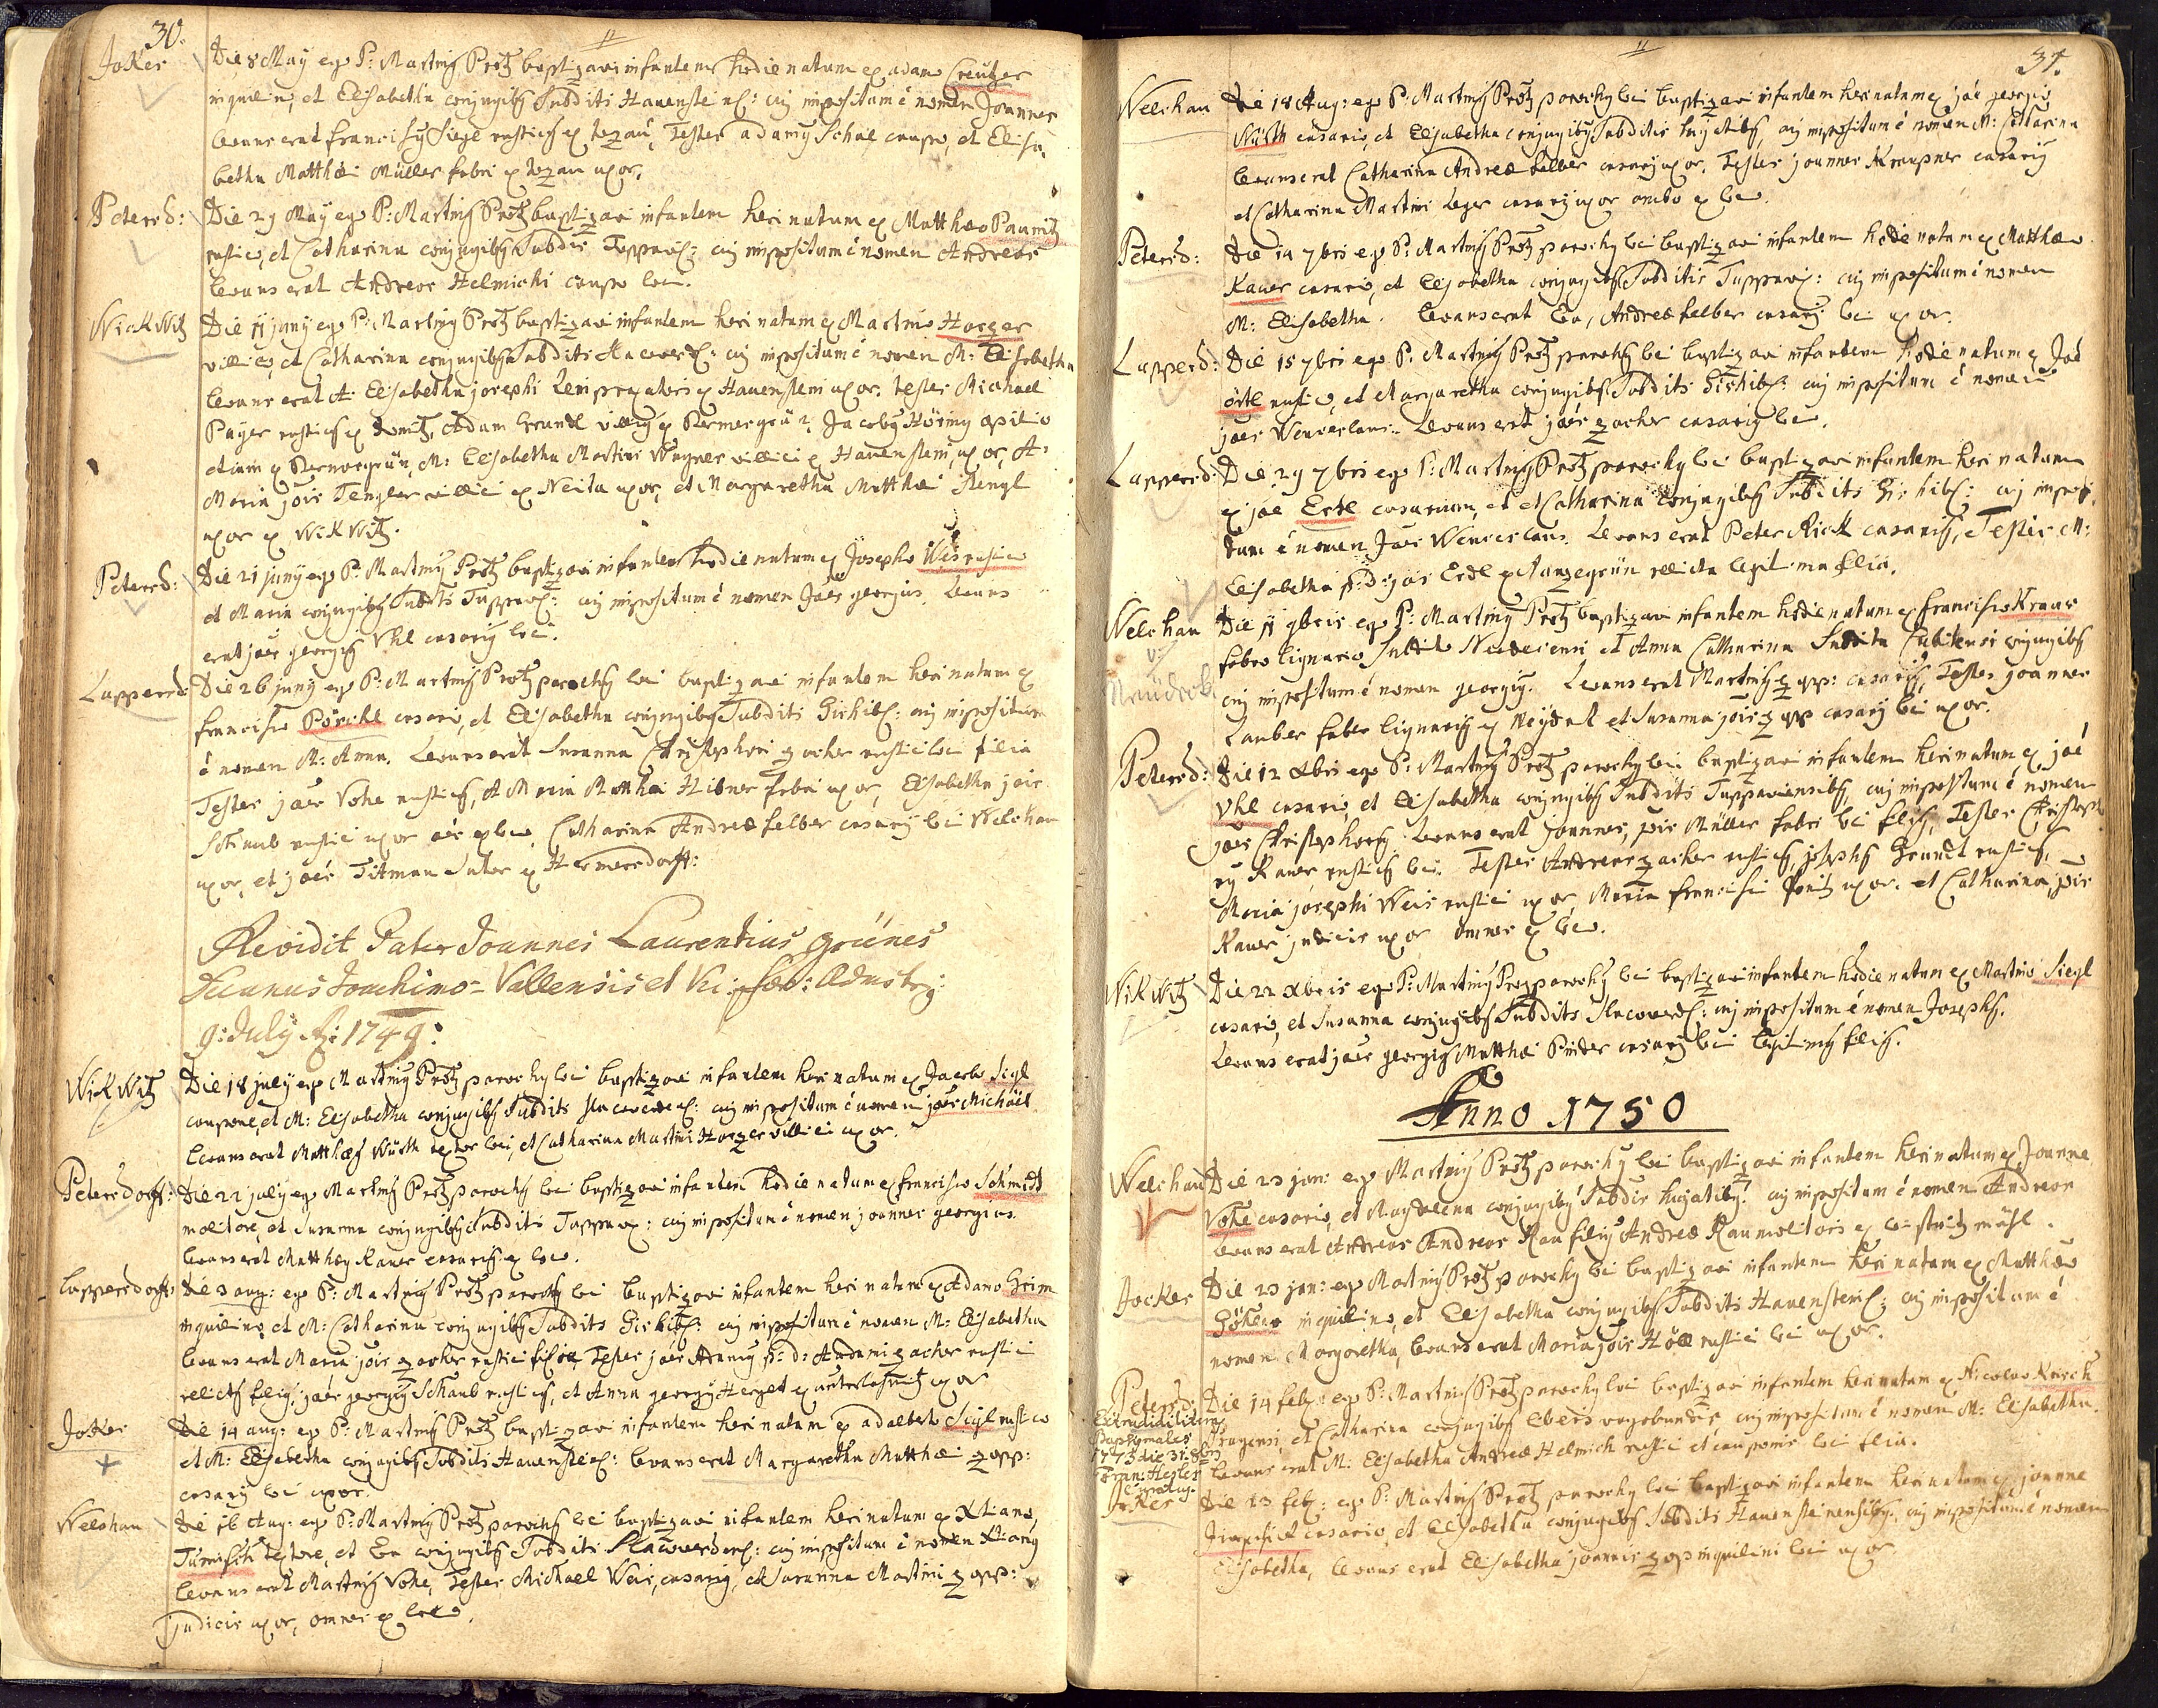 30.
Joker
Die 8 May ego P: Martinus Protz baptizavi infantem hodie natum ex adamo Creutzer
inquilino, et Elisabetha conjugibus Subditis Hauenstein: cui impositum é nomen Joannes
levans erat franciscus Siegl rusticus ex Tests adamus Schal caupo, et Elisa-
betha Matthæi Müller fabri ex uxor.
Petersd:
Die 29 May ego P: Martinus Protz baptizavi infantem heri natum ex Matthæo Paunitz
rustico, et Catharina conjugibus Subdis Tuppav: cui impositum é nomen Andreas
levans erat Andreas Helmichi caupo loci.
WickWitz
Die 11 juny ego P: Martinus Protz baptizavi infantem heri natum ex Martino Horzer
villico, et Catharina conjugibus Subditis cui impositum é nomen M: Elisabetha
levans erat A: Elisabetha josephi ex Hauenstein uxor, testes Michael
Payer rusticus ex Adam Grundl villicus ex Permesgrün, Jacobus opilio
etiam ex Permesgrün, M: Elisabetha Martini Wagner villici ex Hauenstein, uxor, A:
Maria jois Tengler villici ex Neida uxor, et Margaretha Matthæi Stengl
uxor ex WickWitz.
Petersd:
Die 21 juny ego P: Martinus Protz baptizavi infantem hodie natum ex Josepho Weis rustico
et Maria conjugibus Subdtis Tuppav: cui impositum é nomen Joés georgius. Levans
erat joés georgius Uhl casarius loci.
Luppersd:
Die 26 juny ego P: Martinus Protz parochus loci baptizavi infantem heri natum ex
francisco Pörchl casario, et Elisabetha conjugibus Subditis Girkib: cui impositum
é nomen M: Anna. Levans erat Susanna Christophori zacher rustici loci filia
Testes joés Vohe rusticus, et Maria Matthæi Hibner fabri uxor, Elisabetha jois
Schaub rustici uxor oés ex loco, Catharina Andreæ felber casarii loci Welchau
uxor, et joés Titman Sutor ex Hermersdorff:
Revidit Pater Joannes Laurentius grünes
Decanus Joachimo-Vallensis et Vic: foran: Admstrg:
9: July Ao: 1749:
WickWitz
Die 18 july ego Martinus Protz parochus loci baptizavi infantem heri natum ex Jacobo Sigl
caupone, et M: Elisabetha conjugibus Subdtis cui impositum é nomen joés Michäel
levans erat Matthæus Würth textor loci, et Catharina Martini Horzer villici uxor.
Petersdorff:
Die 22 july ego Martinus Protz parochus loci baptizavi infantem hodie natum ex francisco Schmidt
molitore, et Susanna conjugibus Subditis Tuppav: cui impositum é nomen joannes georgius.
levans erat Matthæus Kauer casarius ex loco.
Luppersdorff:
Die 3 aug: ego P: Martinus Protz parochus loci baptizavi infantem heri natum ex Adamo Grim
inquilino, et M: Catharina conjugibus Subdtis Girkib: cui impositum é nomen M: Elisabetha
levans erat Maria jois zacher rustici filia Testes joés Adamus p: d: Adami zacher rustici
relictus filius, joés georgius Schaub rusticus, et Anna georgii Herget ex uxor
Joker
Die 14 aug: ego P: Martinus Protz baptizavi infantem heri natum ex adalberto Sigl rustico
et M: Elisabetha conjugibus Subditis Hauenstein: levans erat Margaretha Matthæi zopp:
casarii loci uxor.
Welchau
Die 16 Aug: ego P: Martinus Protz parochus loci baptizavi infantem heri natum ex Xtiano
textore, et Eva conjugibus Subditis cui impositum é nomen Xtianus
levans erat Martinus Vohe, Testes Michael Weis, casarius, et Susanna Martini zopp:
judicis uxor, omnes ex loco.
31.
Welchau
Die 18 Aug: ego P: Martinus Protz parochus loci baptizavi infantem heri natum ex joé georgio
Würth casario, et Elisabetha conjugibus Subditis hujatibus, cui impositum é nomen M: Catharina
levans erat Catharina Andreæ felber casarii uxor. Testes joannes Kraupner casarius
et Catharina Martini Leger casarii uxor ambo ex loco.
Petersd:
Die 14 7bris ego P: Martinus Protz parochus loci baptizavi infantem hodie natum ex Matthæo
Kauer casario, et Elisabetha conjugibus Subditis Tuppav: cui impositum é nomen
M: Elisabetha. levans erat Eva, Andreæ felber casarii loci uxor.
Luppersd:
Die 15 7bris ego P: Martinus Protz parochus loci baptizavi infantem hodie natum ex Joé
örtl rustico, et Margaretha conjugibus Subdtis Girkib: cui impositum é nomen
joés Wenceslaus. Levans erat joés zacher casarius loci.
Luppersd:
Die 29 7bris ego P: Martinus Protz parochus loci baptizavi infantem heri natum
ex joé Ertl casario, et Catharina conjugibus Subditis Girkib: cui imposi-
tum é nomen joés Wenceslaus. Levans erat Peter Rick casarius, Testis M:
Elisabetha p: d: jois Erdl ex relicta legitima filia.
Welchau
Die 11 9bris ego P: Martinus Protz baptizavi infantem hodie natum ex francisco Kraus
fabro lignario Subdito et Anna Catharina Subdita Cubitensi conjugibus
cui impositum é nomen georgius. Levans erat Martinus zopp: casarius, Testes joannes
Lauber faber lignarius ex Neydek et Susanna jois zopp casarii loci uxor.
Petersd:
Die 12 Xbris ego P: Martinus Protz parochus loci baptizavi infantem heri natum ex joé
Uhl casario, et Elisabetha conjugibus Subditis Tuppaviensibus, cui impositum é nomen
joés Christophorus. Levans erat joannes, jois Müller fabri loci filius, Testes Christoph
Kauer rusticus loci. Testes Andreas zacher rusticus, josephus Grundt rusticus,
Maria josephi Weis rustici uxor, Maria francisci Panitz uxor. et Catharina jois
Kauer judicis uxor omnes ex loco.
WickWitz
Die 22 Xbris ego P: Martinus Protz parochus loci baptizavi infantem hodie natum ex Martino Siegl
casario, et Susanna conjugibus Subdtis cui impositum é nomen Josephus.
Levans erat joés georgius Matthæi Pinder casarii loci legitimus filius.
Anno 1750
Welchau
Die 23 jan: ego Martinus Protz parochus loci baptizavi infantem heri natum ex Joanne
Vohe casario, et Magdalena conjugibus Subdis hujatibus: cui impositum é nomen Andreas
levans erat Andreas Andreas Rau filius Andreæ Rau molitoris ex mühl.
Jocker
Die 23 jan: ego Martinus Protz parochus loci baptizavi infantem heri natam ex Matthæo
inquilino, et Elisabetha conjugibus Subditis Hauenstein: cui impositum é
nomen Margaretha, levans erat Maria jois Höll rustici loci uxor.
Petersd:
Extradidi literas
Baptismales
1773 die 31:
Fran: Hesler
Curatus.
Die 14 feb: ego P: Martinus Protz parochus loci baptizavi infantem heri natam ex Nicolao
Pragensi, et Catharina conjugibus liberis vagabundis cui impositum é nomen M: Elisabetha.
levans erat M: Elisabetha Andreæ Helmich rustici et cauponis loci filia.
Joker
Die 23 feb: ego P: Martinus Protz parochus loci baptizavi infantem heri natam ex joanne
casario, et Elisabetha conjugibus Subditis Hauensteinensibus, cui impositum é nomen
Elisabetha, levans erat Elisabetha joannis zopp inquilini loci uxor.